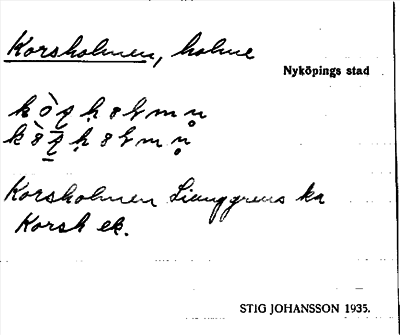 Korsholmen, holme
Nyköpings stad
Korsholmen Ljunggrens ka
Korsh ek.
STIG JOHANSSON 1935.